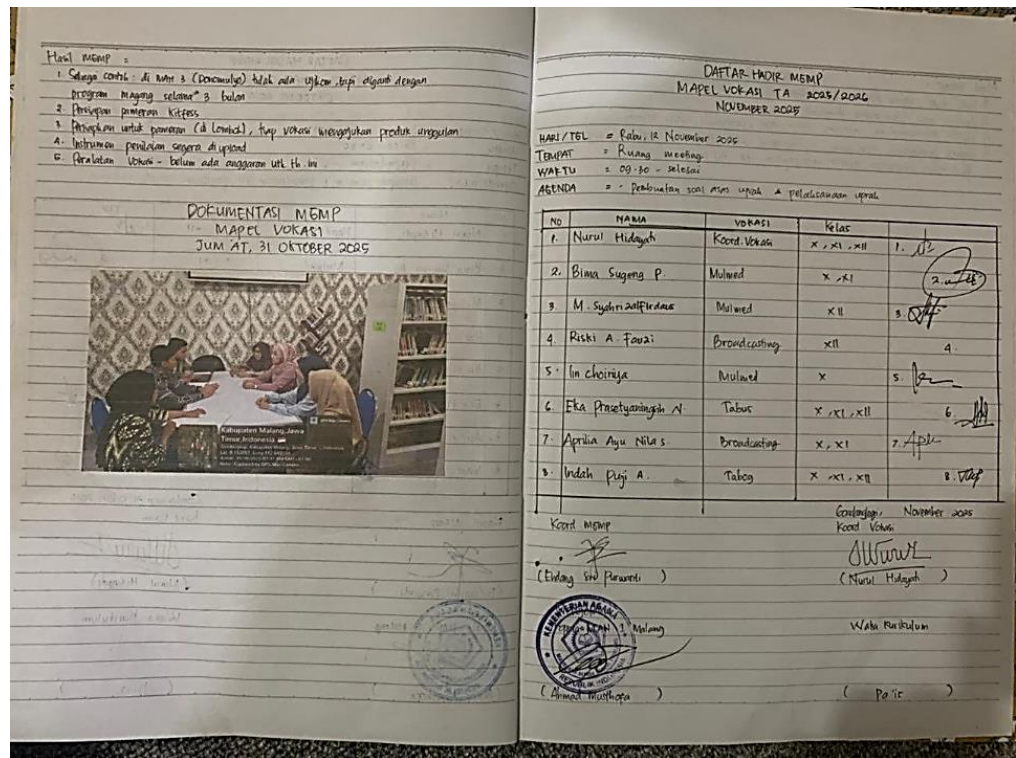 Hasil MGMP =
1. Sebagai contoh : di MAN 3 (Donomulyo) tidak ada Ujikom, tapi diganti dengan
program magang selama ± 3 bulan
2. Persiapan pameran Kitfess
3. Persiapkan untuk pameran (di Lombok), tiap vokasi mengajukan produk unggulan
4. Instrumen penilaian segera di upload
5. Peralatan Vokasi - belum ada anggaran utk th. ini
DOKUMENTASI MGMP
MAPEL VOKASI
JUM'AT, 31 OKTOBER 2025
Kabupaten Malang, Jawa
Timur, Indonesia
DAFTAR HADIR MGMP
MAPEL VOKASI TA 2025/2026
NOVEMBER 2025
HARI/TGL = Rabu, 12 November 2025
TEMPAT = Ruang meeting
WAKTU = 09.30 - selesai
AGENDA = - Pembuatan soal asas uprak & pelaksanaan uprak
NO NAMA VOKASI Kelas
1. Nurul Hidayah Koord. Vokasi X, XI, XII 1.
2. Bima Sugeng P. Mulmed X, XI 2.
3. M. Syahrizalfirdaus Mulmed XII 3.
4. Riski A. Fauzi Broadcasting XII 4.
5. Iin Choiriya Mulmed X 5.
6. Eka Prasetyaningsih N. Tabus X, XI, XII 6.
7. Aprilia Ayu Nila S. Broadcasting X, XI 7.
8. Indah Puji A. Tabog X, XI, XII 8.
Gondanglegi, November 2025
Koord MGMP Koord Vokasi
(Endang Sri Purwanti) (Nurul Hidayah)
KEMENTERIAN AGAMA
REPUBLIK INDONESIA
Kepala MAN 1 Malang Waka Kurikulum
(Ahmad Musthofa) (Pa'is)